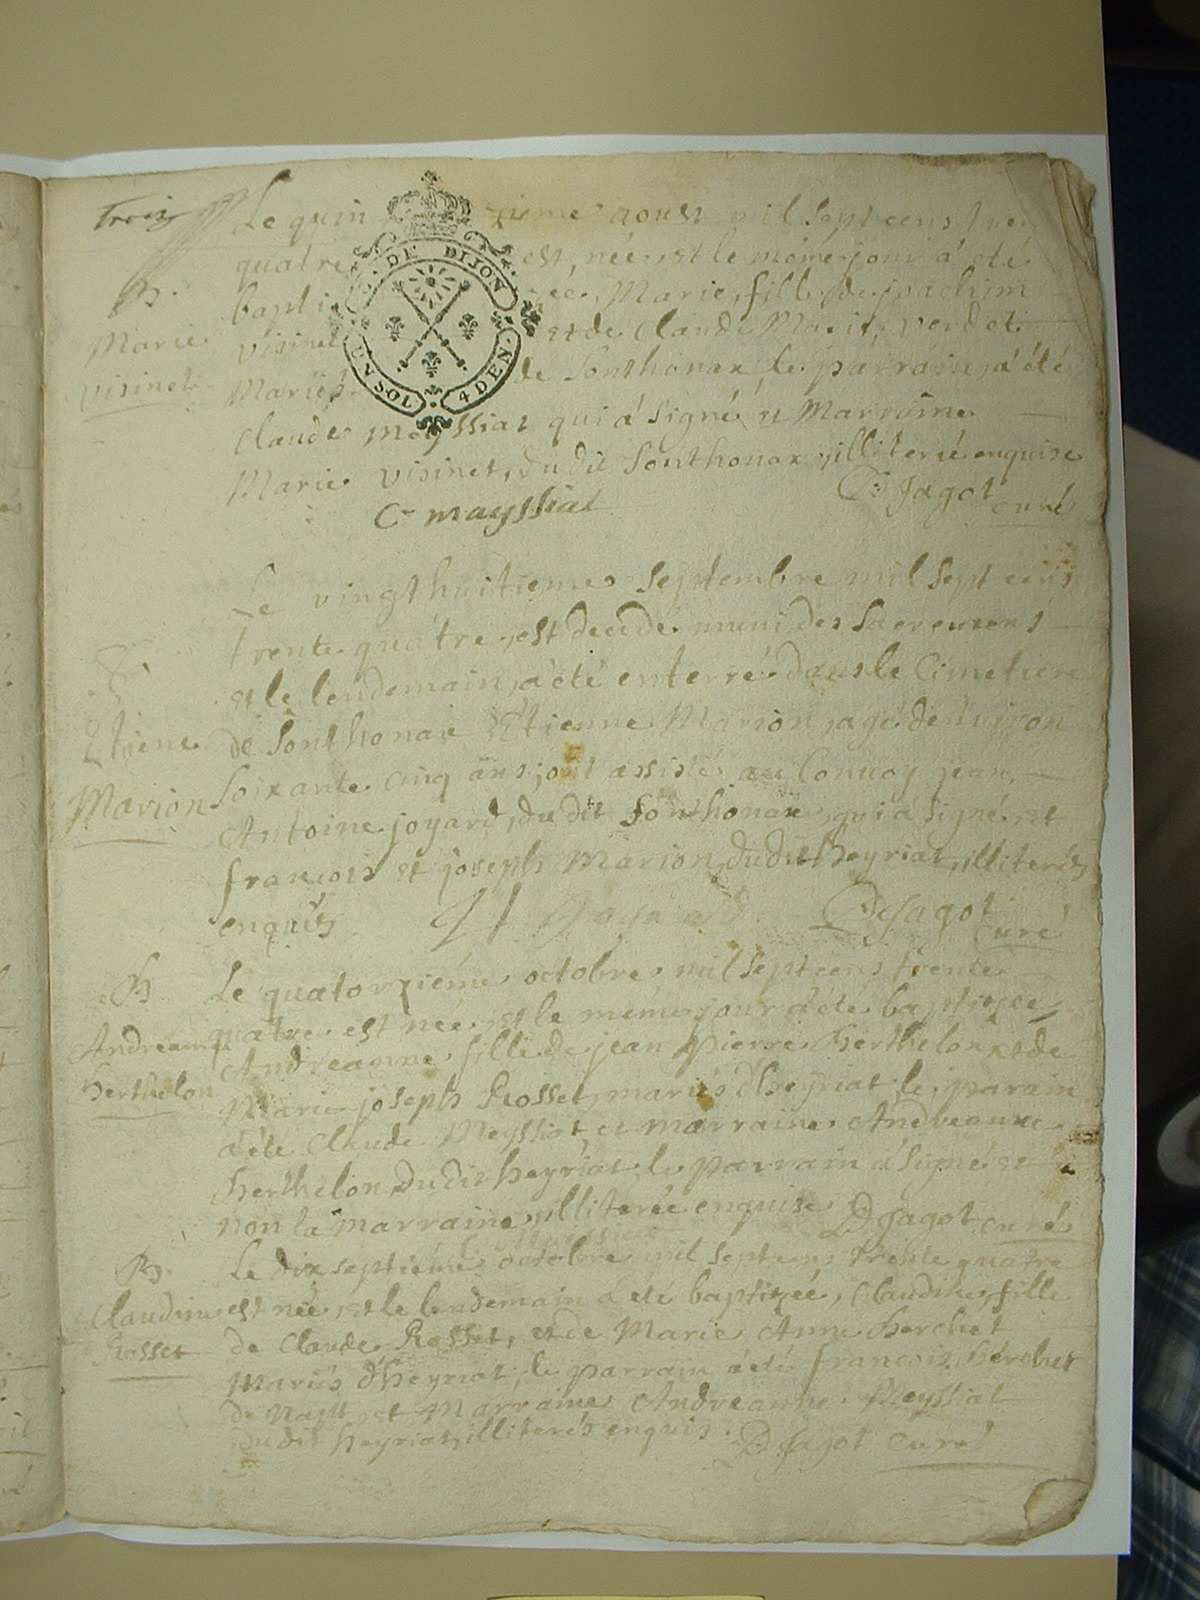 Trois
Le quin zieme aoust mil sept cens tren
quatre est née et le même jour a été
B.
bapti zée Marie fille de joachim
Marie
visinet et de Claude Marie verdet
visinet
Mariés de Sonthonax le parrain a été
Claude Meyssiat qui a signé et Marraine
Marie visinet, du dit Sonthonax illiterée enquise
C mayssiat
D Jagot curé
DE DIJON
UN SOL 4 DEN.
Le vingt huitieme Septembre mil sept cens
trente quatre est decedé muni des sacremens
et le lendemain a été enterré dans le Cimetiere
Etiene
de Sonthonax Etienne Marion agé denviron
Marion
Soixante cinq ans, jont assisté au Convoy jean
Antoine joyard, du dit Sonthonax qui a signé, et
françois et joseph Marion, du dit heyriat, illiterés
enquis
joyard
D Jagot
curé
B
Le quatorziéme octobre mil sept cens trente
Andreanne
quatre est née et le même jour a été baptizée
herthelon
Andreanne fille de jean pierre herthelon et de
Marie joseph Rosset mariés d'heyriat le parain
a été Claude Meyssiat, et marraine Andreanne
herthelon du dit heyriat le parrain a signé et
non la marraine illiterée enquise D Jagot curé
B.
Le dix septiéme octobre mil sept cens trente quatre
Claudine
est née et le lendemain a été baptizée, Claudine, fille
Rosset
de Claude Rosset, et de Marie Anne herchet
Mariés d'heyriat, le parrain a été françois hérchet
de Napt et Marraine Andreanne Meyssiat
du dit heyriat, illiterés enquis. D Jagot curé